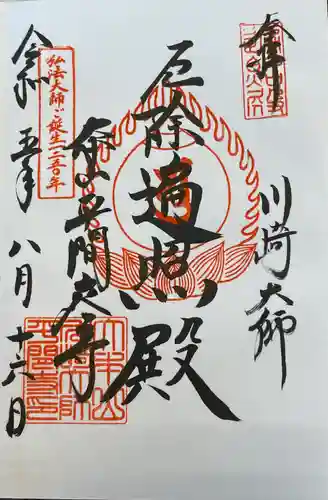 奉拝
川崎大師
厄除遍照殿
金山平間大寺
弘法大師ご誕生一二五〇年
令和五年八月十六日